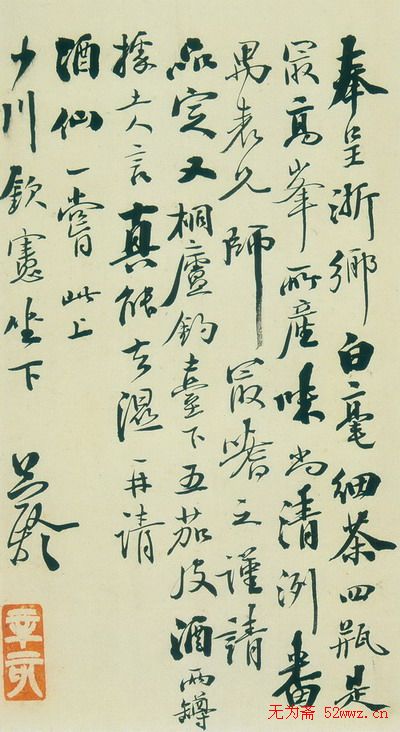 奉呈浙鄉白毫細茶四瓶是
最高峯所産味尚清洌番
禺表兄師最嗜之謹請
品定又桐廬釣臺下五茄皮酒兩罇
據土人言真能去濕一并請
酒仙一嘗此上
少川欽憲坐下
无为斋 52wwz.cn